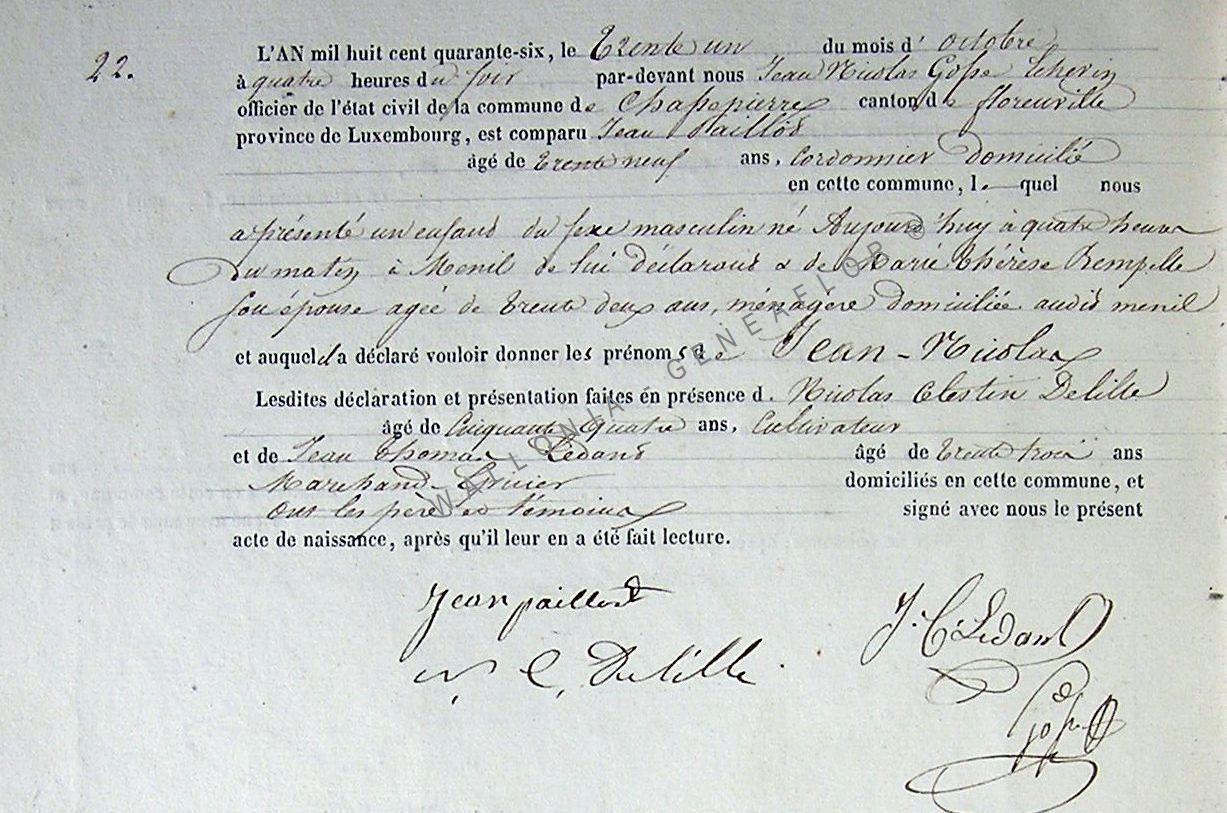 22.
L'AN mil huit cent quarante-six, le Trente un du mois d' octobre
à quatre heures du soir par-devant nous Jean Nicolas Gosse Echevin
officier de l'état civil de la commune de Chassepierre canton de florenville
province de Luxembourg, est comparu Jean Paillot
âgé de trente neuf ans, Cordonnier domicilié
en cette commune, le quel nous
a présenté un enfant du sexe masculin né Aujourd'huy à quatre heures
du matin à Menil de lui déclarant & de Marie Thérèse Rempelle
son épouse agée de trente deux ans, ménagère domiciliée audit menil
et auquel il a déclaré vouloir donner les prénoms de Jean-Nicolas
Lesdites déclaration et présentation faites en présence d. Nicolas Celestin Delille
âgé de Cinquante quatre ans, Cultivateur
et de Jean Thomas Ledant âgé de trente trois ans
Marchand domiciliés en cette commune, et
Ont les père et témoins signé avec nous le présent
acte de naissance, après qu'il leur en a été fait lecture.
Jean paillot
J. T. Ledant
N. C. Delille
Gosse
WALLONIA - GENEAFLOB ©